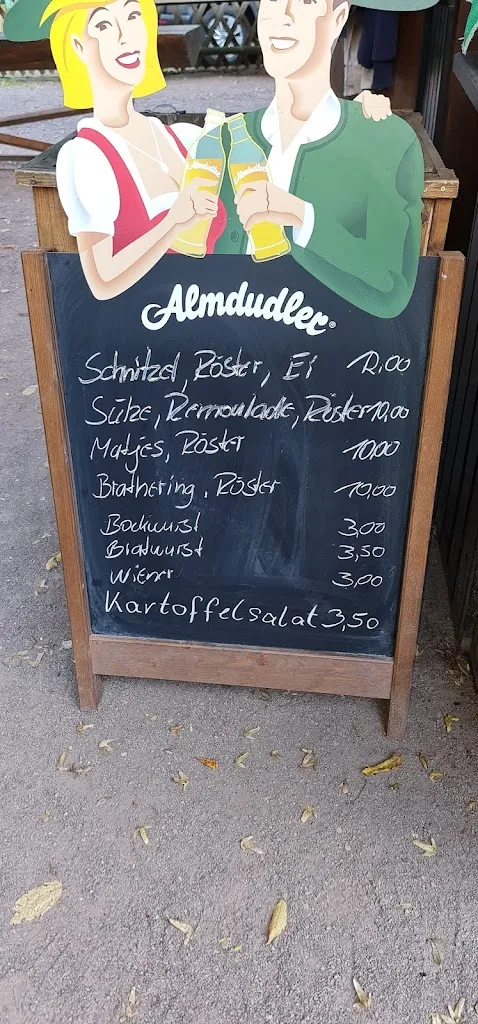 Almdudler Almdudler
Almdudler®
Schnitzel, Röster, Ei 12,00
Sülze, Remoulade, Röster 10,00
Matjes, Röster 10,00
Brathering, Röster 10,00
Bockwurst 3,00
Bratwurst 3,50
Wiener 3,00
Kartoffelsalat 3,50